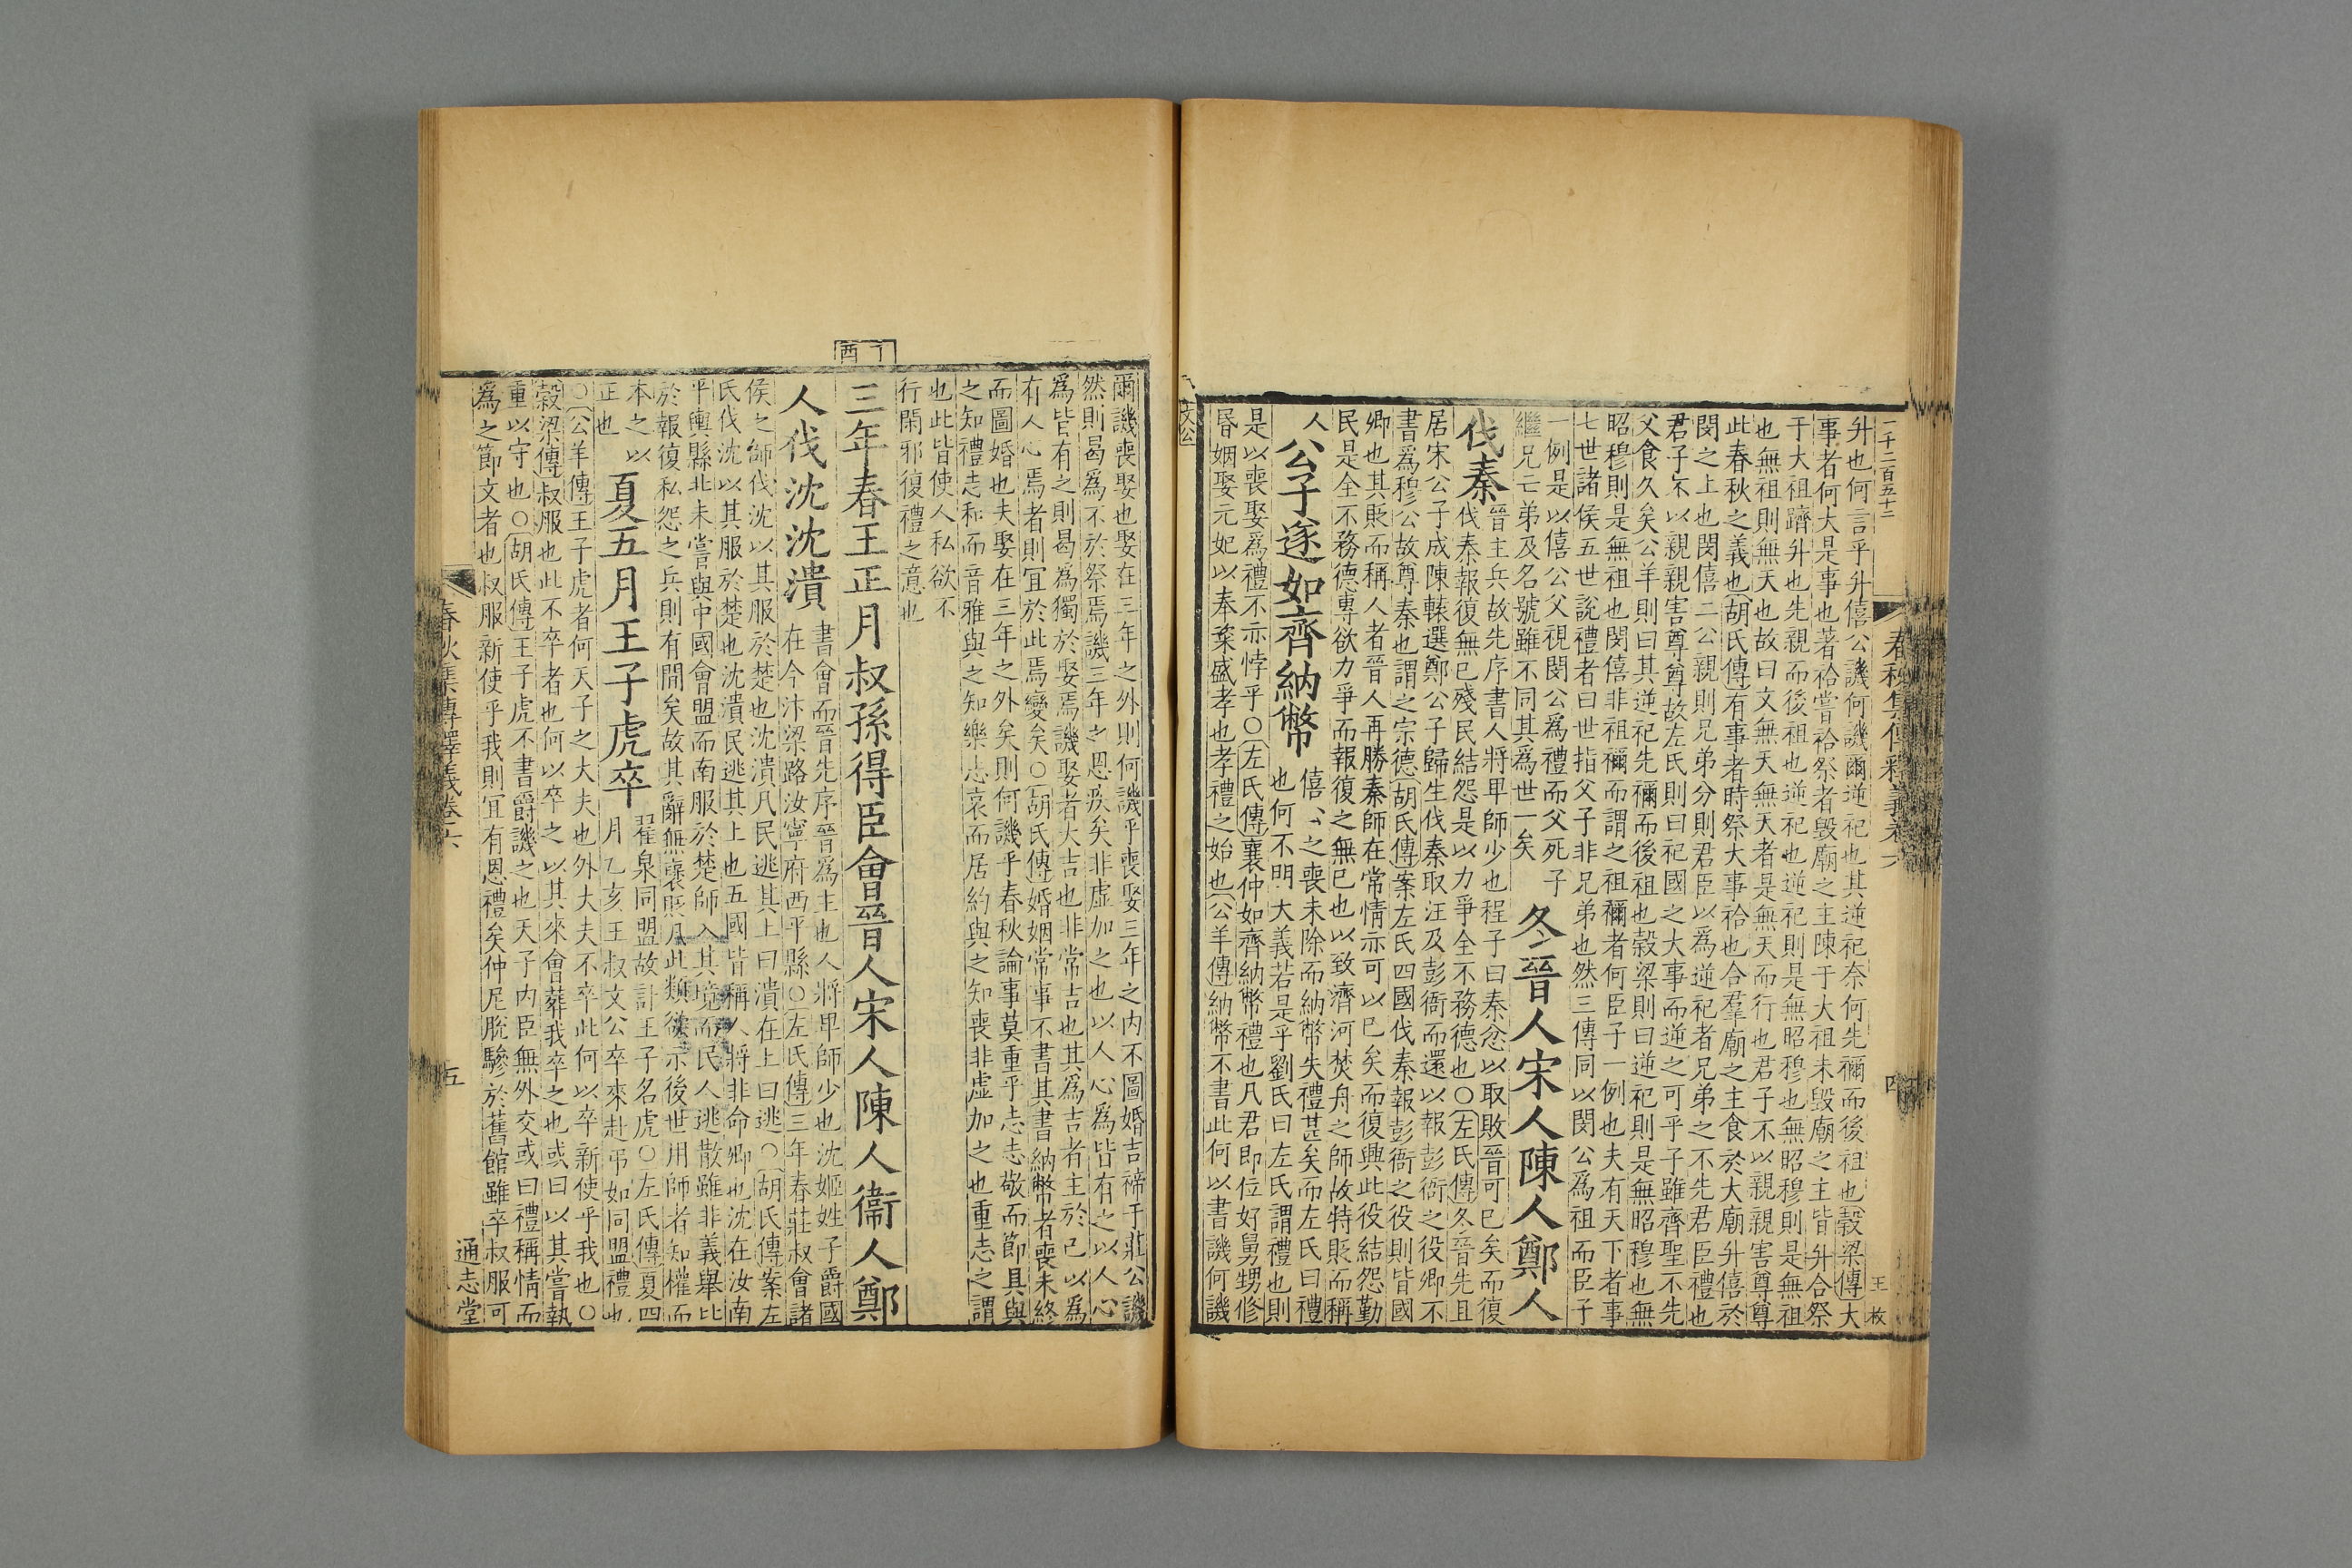 一千二百五十二
春秋集傳釋義卷六
四
王枚
升也何言乎升僖公譏何譏爾逆祀也其逆祀奈何先禰而後祖也穀梁傳大
事者何大是事也著祫嘗祫祭者毀廟之主陳于大祖未毀廟之主皆升合祭
于大祖躋升也先親而後祖也逆祀也逆祀則是無昭穆也無昭穆則是無祖
也無祖則無天也故曰文無天無天者是無天而行也君子不以親親害尊尊
此春秋之義也胡氏傳有事者時祭大事祫也合羣廟之主食於大廟升僖於
閔之上也閔僖二公親則兄弟分則君臣以為逆祀者兄弟之不先君臣禮也
君子不以親親害尊尊故左氏則曰祀國之大事而逆之可乎子雖齊聖不先
父食久矣公羊則曰其逆祀先禰而後祖也穀梁則曰逆祀則是無昭穆也無
昭穆則是無祖也閔僖非祖禰而謂之祖禰者何臣子一例也夫有天下者事
七世諸侯五世說禮者曰世指父子非兄弟也然三傳同以閔公為祖而臣子
一例是以僖公父視閔公為禮而父死子
繼兄亡弟及名號雖不同其爲世一矣
冬晉人宋人陳人鄭人
伐秦
晉主兵故先序書人將卑師少也程子曰秦忿以取敗晉可已矣而復
伐秦報復無已殘民結怨是以力爭全不務德也○左氏傳冬晉先且
居宋公子成陳轅選鄭公子歸生伐秦取汪及彭衙而還以報彭衙之役卿不
書爲穆公故尊秦也謂之宗德胡氏傳案左氏四國伐秦報彭衙之役則皆國
卿也其貶而稱人者晉人再勝秦師在常情亦可以已矣而復興此役結怨勤
民是全不務德專欲力爭而報復之無已也以致濟河焚舟之師故特貶而稱
人
公子遂如齊納幣
僖公之喪未除而納幣失禮甚矣而左氏曰禮
也何不明大義若是乎劉氏曰左氏謂禮也則
是以喪娶爲禮不亦悖乎○左氏傳襄仲如齊納幣禮也凡君即位好舅甥修
昏姻娶元妃以奉粢盛孝也孝禮之始也公羊傳納幣不書此何以書譏何譏
文公
爾譏喪娶也娶在三年之外則何譏乎喪娶三年之內不圖婚吉禘于莊公譏
然則曷爲不於祭焉譏三年之恩疾矣非虛加之也以人心爲皆有之以人心
爲皆有之則曷爲獨於娶焉譏娶者大吉也非常吉也其爲吉者主於己以爲
有人心焉者則宜於此焉變矣○胡氏傳婚姻常事不書其書納幣者喪未終
而圖婚也夫娶在三年之外矣則何譏乎春秋論事莫重乎志志敬而節具與
之知禮志和而音雅與之知樂志哀而居約與之知喪非虛加之也重志之謂
也此皆使人私欲不
行閑邪復禮之意也
丁酉
三年春王正月叔孫得臣會晉人宋人陳人衞人鄭
人伐沈沈潰
書會而晉先序晉爲主也人將卑師少也沈姬姓子爵國
在今汴梁路汝寧府西平縣○左氏傳三年春莊叔會諸
侯之師伐沈以其服於楚也沈潰凡民逃其上曰潰在上曰逃○胡氏傳案左
氏伐沈以其服於楚也沈潰民逃其上也五國皆稱人將非命卿也沈在汝南
平輿縣北未嘗與中國會盟而南服於楚師入其境而民人逃散雖非義舉比
於報復私怨之兵則有間矣故其辭無襃貶凡此類欲示後世用師者知權而
本之以
正也
夏五月王子虎卒
翟泉同盟故訃王子名虎○左氏傳夏四
月乙亥王叔文公卒來赴弔如同盟禮也
○公羊傳王子虎者何天子之大夫也外大夫不卒此何以卒新使乎我也○
穀梁傳叔服也此不卒者也何以卒之以其來會葬我卒之也或曰以其嘗執
重以守也○胡氏傳王子虎不書爵譏之也天子內臣無外交或曰禮稱情而
爲之節文者也叔服新使乎我則宜有恩禮矣仲尼脫驂於舊館雖卒叔服可
春秋集傳釋義卷六
五
通志堂